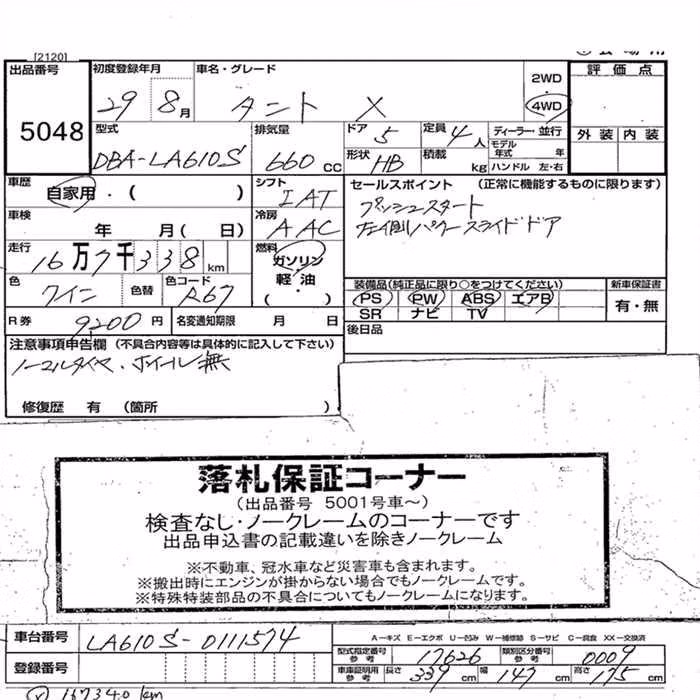 [2120]
出品番号 初度登録年月 車名・グレード 2WD 評価点
5048 29 8月 タント X 4WD
外装 内装
型式 排気量 ドア 5 定員 4人 ディーラー・並行
モデル年式 年
DBA-LA610S 660cc 形状 HB 積載 kg ハンドル 左・右
車歴 自家用・( ) シフト IAT セールスポイント (正常に機能するものに限ります)
プッシュスタート
左側パワースライドドア
車検 年 月( 日) 冷房 AAC
走行 16万7千338km 燃料 ガソリン 軽・油 (・)
色 ワイン 色替 色コード R67
装備品(純正品に限り○をつけてください) 新車保証書
PS PW ABS エアB 有・無
SR ナビ TV
R券 9200円 名変通知期限 月 日 後日品
注意事項申告欄 (不具合内容等は具体的に記入して下さい)
ノーマルタイヤ・ホイール無
修復歴 有 (箇所 )
落札保証コーナー
(出品番号 5001号車~)
検査なし・ノークレームのコーナーです
出品申込書の記載違いを除きノークレーム
※不動車、冠水車など災害車も含まれます。
※搬出時にエンジンが掛からない場合でもノークレームです。
※特殊特装部品の不具合についてもノークレームになります。
車台番号 LA610S-0111574
A-キズ E-エクボ U-凹み W-補修跡 S-サビ C-腐食 XX-交換済
型式指定番号 参考 17626 類別区分番号 参考 0009
登録番号
車庫証明用 参考 長さ 339cm 幅 147cm 高さ 175cm
167340km